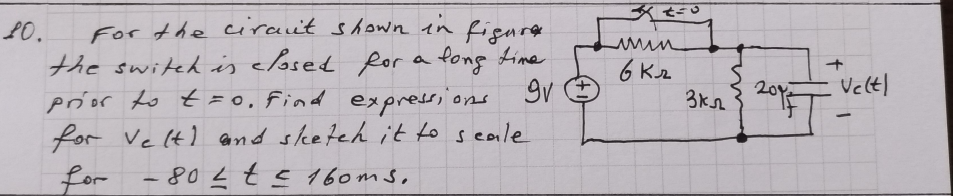 10. For the circuit shown in figure
the switch is closed for a long time
prior to t=0. Find expressions
for Vc(t) and sketch it to scale
for -80 ≤ t ≤ 160ms.
t=0
6KΩ
9V
+
-
3KΩ
20μf
+
Vc(t)
-